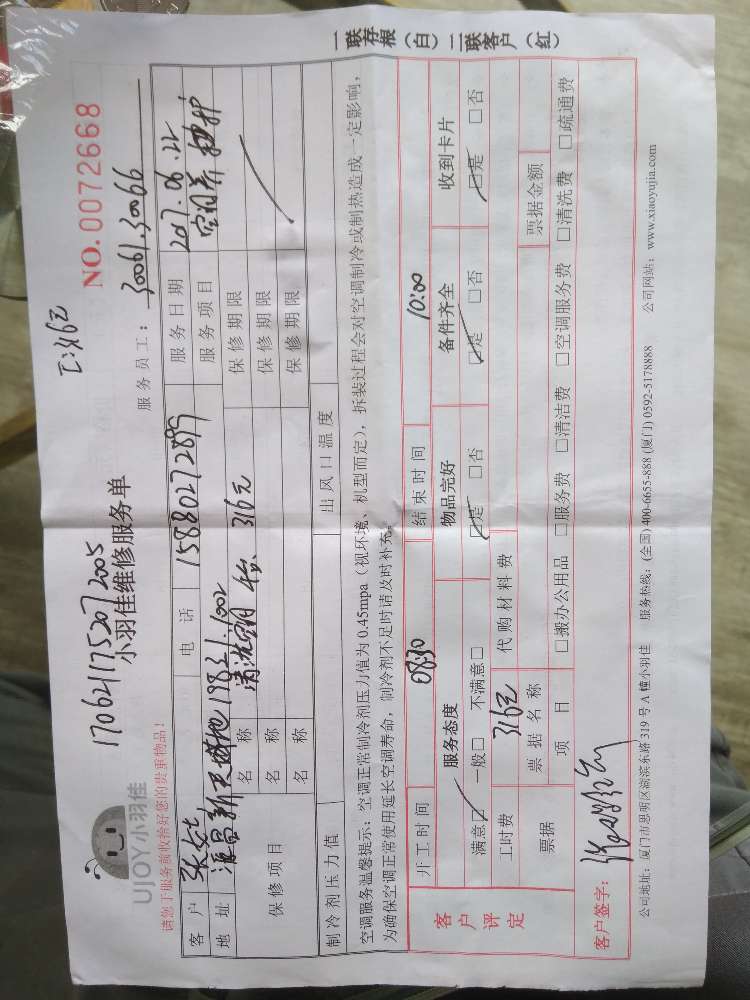 1706211752072005
已:316元
UJOY小羽佳
小羽佳维修服务单
NO.0072668
请您于服务前收拾好您的贵重物品!
服务员工: 30061.30066
客户 电话 15880272899 服务日期 2017.06.22
地址 新天地 1002 服务项目
保修项目 名称 清洗 316元 保修期限
名称 保修期限
名称 保修期限
制冷剂压力值 出风口温度
空调服务温馨提示:空调正常制冷剂压力值为 0.45mpa(视环境、机型而定),拆装过程会对空调制冷或制热造成一定影响,
为确保空调正常使用延长空调寿命,制冷剂不足时请及时补充。
一联存根(白)二联客户(红)
客户评定
开工时间 08:30 结束时间 10:00
服务态度 物品完好 备件齐全 收到卡片
满意☑ 一般□ 不满意□ ☑是 □否 ☑是 □否 ☑是 □否
工时费 316元 代购材料费
票据 票据名称 票据金额
项目 □搬办公用品 □服务费 □清洁费 □空调服务费 □清洗费 □疏通费
客户签字:
公司地址:厦门市思明区湖滨东路 319 号 A 幢小羽佳 服务热线:(全国) 400-6655-888 (厦门) 0592-5178888 公司网站:www.xiaoyujia.com